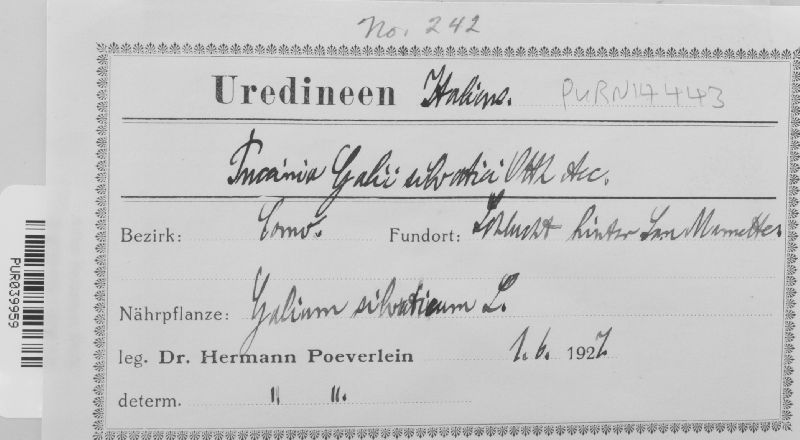 No. 242
Uredineen Italiens. PURN17443
Puccinia Galii silvatici Otth Aec.
Bezirk: Como. Fundort: Schlucht hinter San Mamette.
Nährpflanze: Galium silvaticum L.
leg. Dr. Hermann Poeverlein 1.6. 1927
determ. " ".
PUR039959